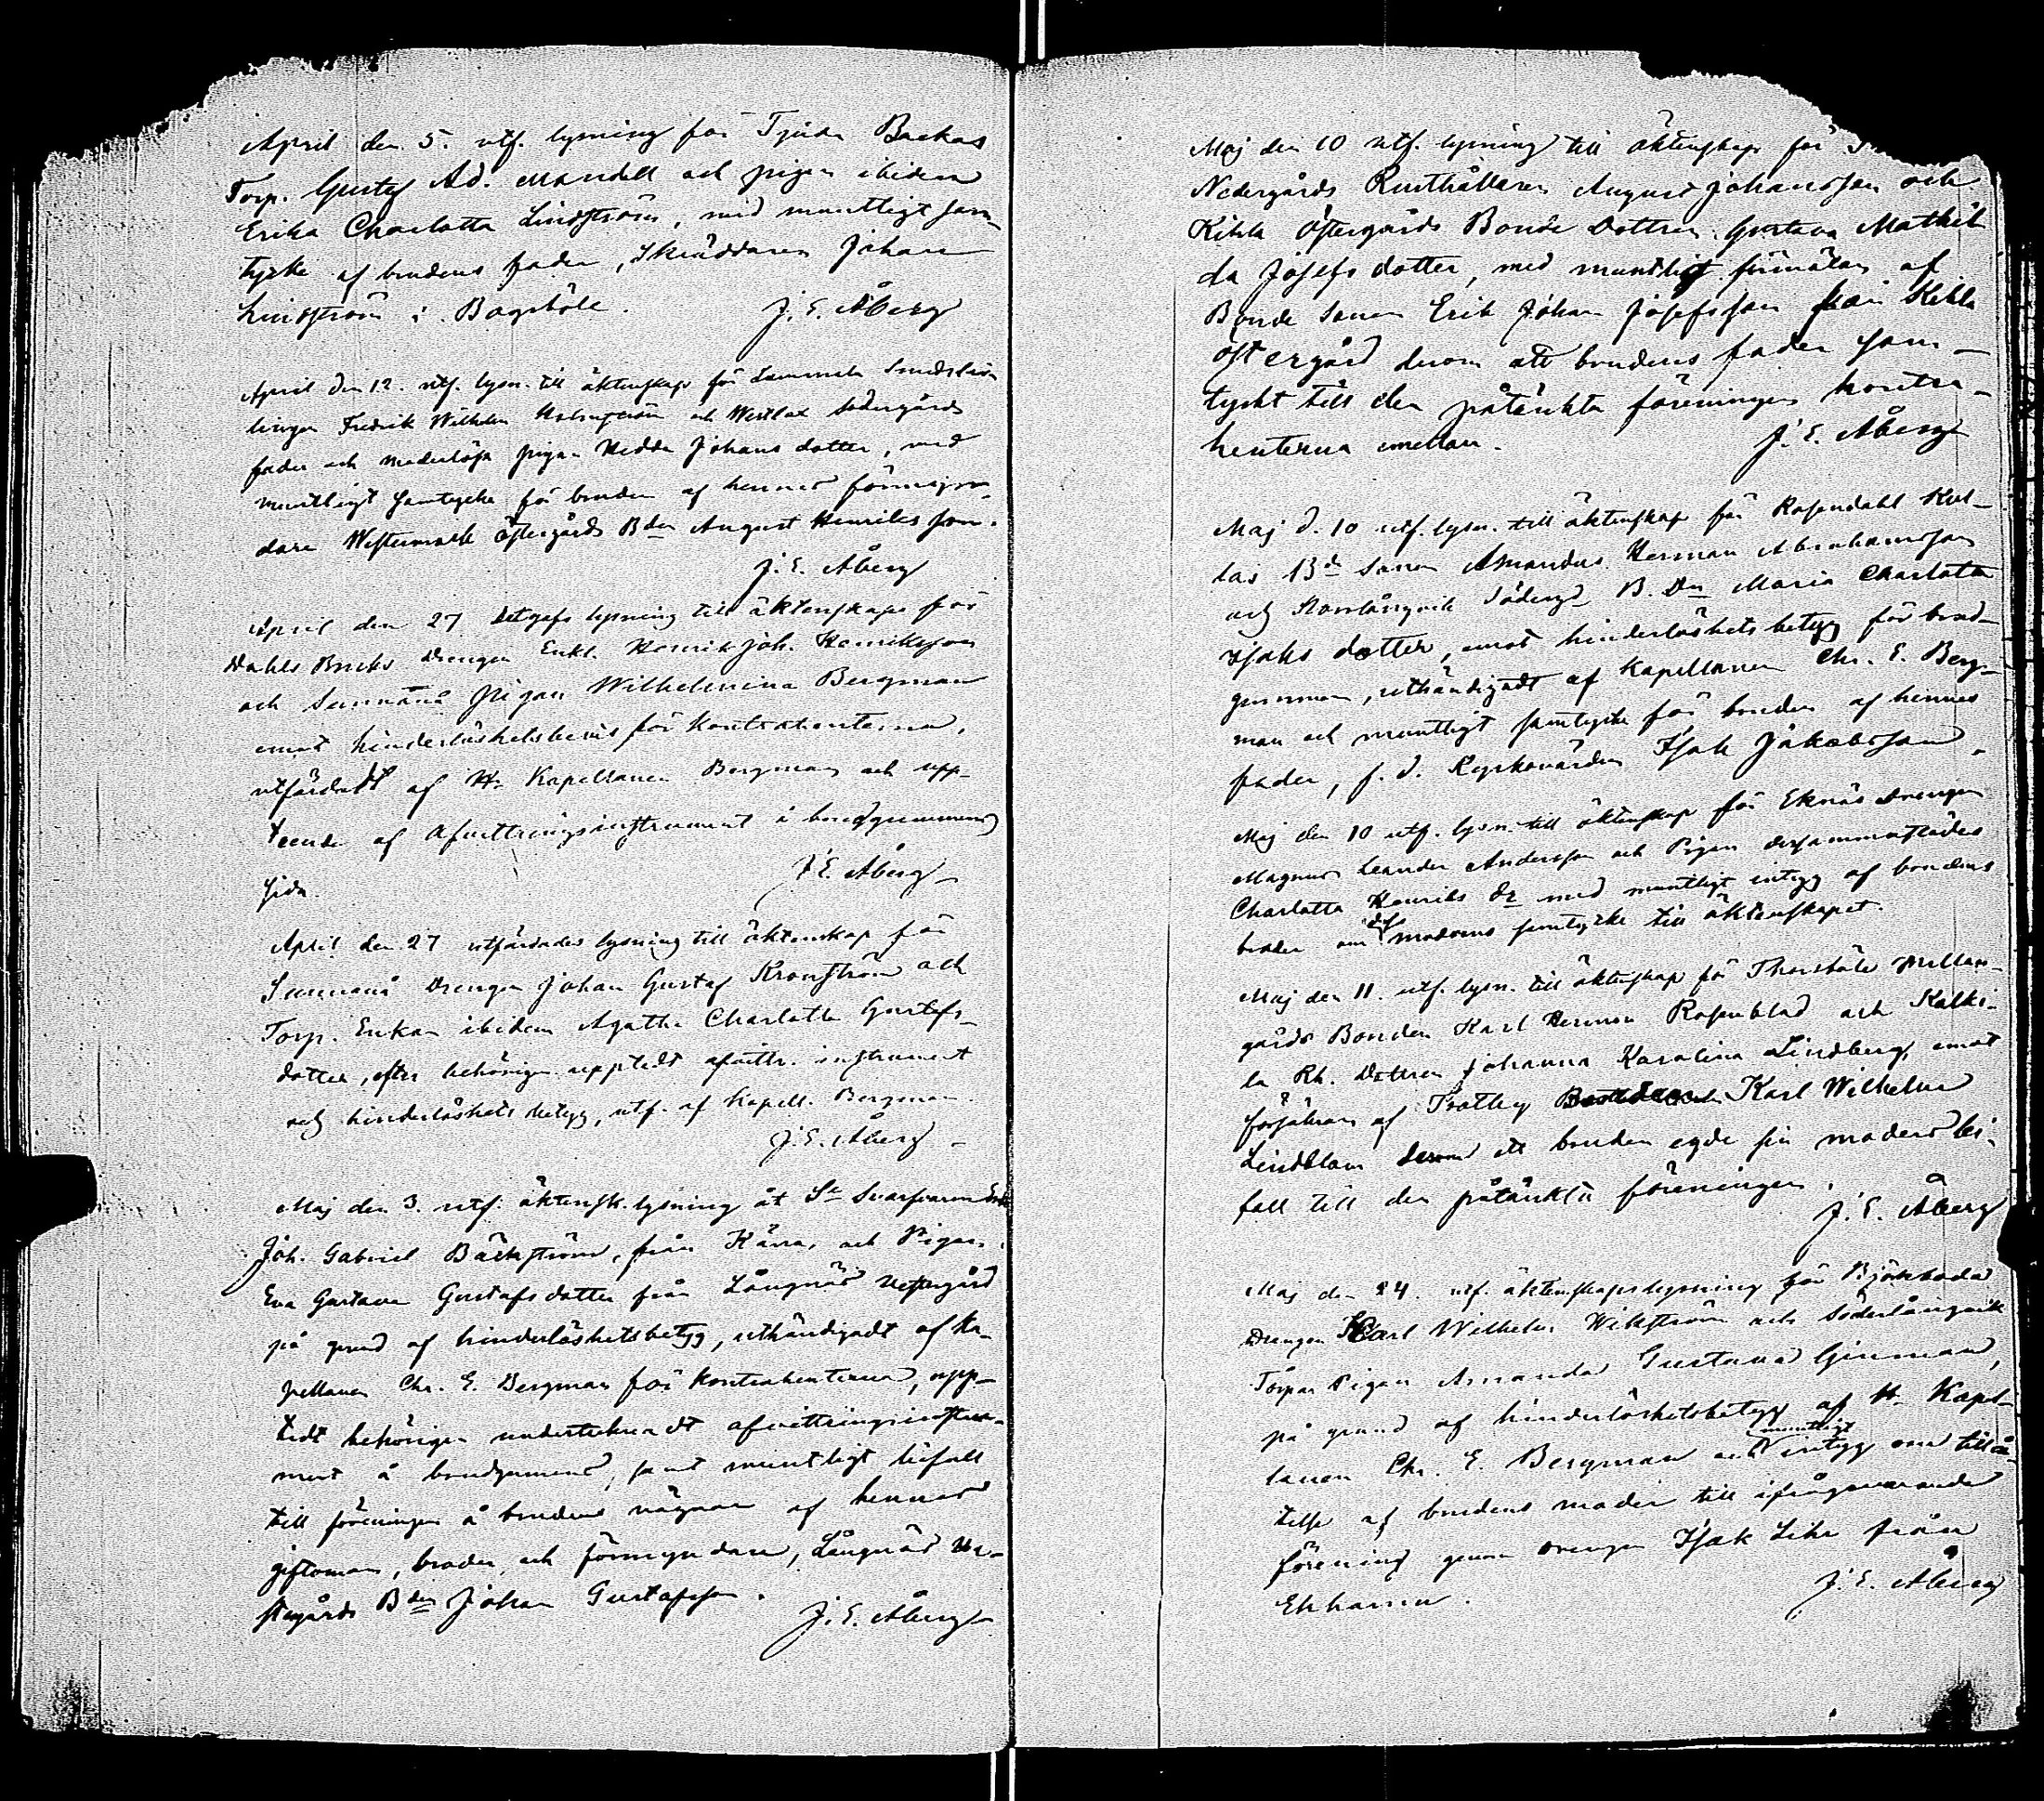 April den 5. utf. lysning för Tjuda Backas
Torp. Gustaf Ad. Mandell och pigan ibidem
Erika Charlotta Lindström, med muntligt sam-
tycke af brudens fader, Skräddaren Johan
Lindström i Bogsböle. J. E. Åberg
April den 12. utf. lysn. till äktenskap för Lammala Smedslär-
lingen Fredrik Wilhelm och Westlax Södergårds
fader och moderlösa pigan Hedda Johans dotter, med
muntligt samtycke för bruden af hennes förmyn-
dare Westermark Östergårds Bden August Henriksson.
J. E. Åberg
April den 27 utgafs lysning till äktenskap för
Dahls Bruks Drengen Enkl. Henrik Joh. Henriksson
och Sunnanå pigan Wilhelmina Bergman
emot hinderlöshetsbevis för kontrahenterna,
utfärdadt af Hr Kapellanen Bergman och upp-
teende af Afvittringsinstrument å brudgummens
sida. J. E. Åberg
April den 27 utfärdades lysning till äktenskap för
Sunnanå Drengen Johan Gustaf Kronström och
Torp. Enkan ibidem Agatha Charlotta Gustafs-
dotter, efter behörigen uppteedt afvittr. instrument
och hinderlöshets betyg, utf. af Kapell. Bergman.
J. E. Åberg
Maj den 3. utf. äktensk. lysning åt St. Svarfvaren Enkl.
Joh. Gabriel Bäckström, från Kärra, och Pigan
Eva Gustava Gustafs dotter från Långnäs Nestergård
på grund af hinderlöshetsbetyg, uthändigadt af Ka-
pellanen Chr. E. Bergman för kontrahenterna, upp-
tedt behörigen undertecknadt afvittringsinstru-
ment å brudgummens, samt muntligt bifall
till föreningen å brudens vägnar af hennes
giftoman, broder och förmyndare, Långnäs Ne-
stergårds Bden Johan Gustafsson.
J. E. Åberg
Maj den 10 utf. lysning till äktenskap för
Nedergårds Rusthållaren August Johansson och
Kihla Östergårds Bonde Dottren Gustava Mathil-
da Josefs dotter, med muntligt förmälan af
Bonde Sonen Erik Johan Josefsson från Kihla
Östergård derom att brudens fader sam-
tyckt till den påtänkta föreningen kontra-
henterna emellan. J. E. Åberg
Maj d. 10 utf. lysn. till äktenskap för Rosendahl Kul-
las Bde Sonen Amandus Herman Abrahamsson
och Norrlångvik Söderg. B. Dn Maria Charlotta
Isaks dotter, emot hinderlöshets betyg för brud-
gummen, uthändigadt af Kapellanen Chr. E. Berg-
man och muntligt samtycke för bruden af hennes
fader, f. d. Kyrkovärden Isak Jakobsson.
Maj den 10 utf. lysn. till äktenskap för Eknäs Drengen
Magnus Leander Andersson och Pigan dersammastädes
Charlotta Henriks dr med muntligt intyg af brudens
broder om dess moderns samtycke till äktenskapet.
Maj den 11. utf. lysn. till äktenskap för Thorsböle Mellan-
gårds Bonden Karl Herman Rosenblad och Kalki-
la Rh. Dottren Johanna Karolina Lindberg, emot
försäkran af Trotby Karl Wilhelm
Lindblom derom att bruden egde sin moders bi-
fall till den påtänkta föreningen.
J. E. Åberg
Maj den 24. utf. äktenskapslysning för Björkboda
Drengen Karl Wilhelm Wikström och Söderlångvik
Torpar Pigan Amanda Gustava Ginman,
på grund af hinderlöshetsbetyg af Hr Kapel-
lanen Chr. E. Bergman och muntligt intyg om tillå-
telse af brudens moder till ifrågavarande
förening genom drengen Isak Lihr från
Ekhamn. J. E. Åberg